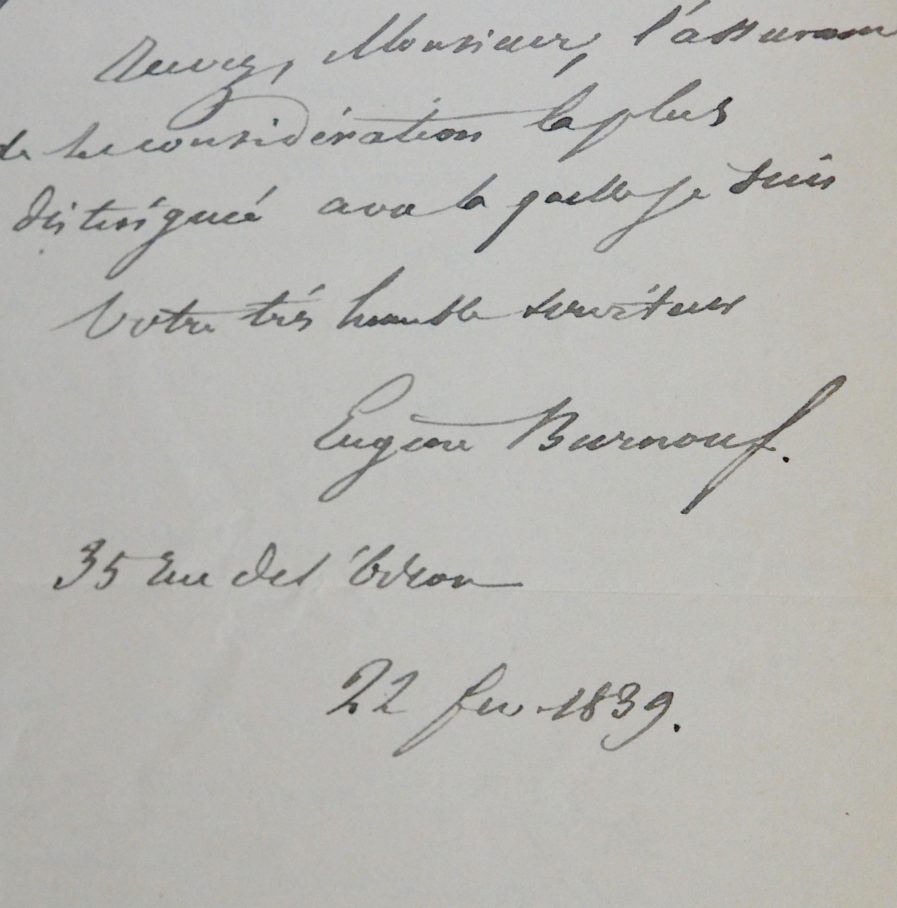 Agréez, Monsieur, l'assurance
de la considération la plus
distinguée avec laquelle je suis
Votre très humble serviteur
Eugène Burnouf.
35 rue de l'Odéon
22 fev. 1839.